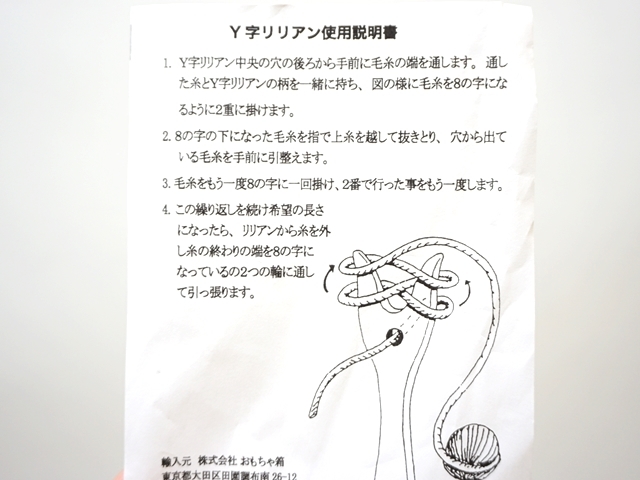 Y字リリアン使用説明書
1. Y字リリアン中央の穴の後ろから手前に毛糸の端を通します。通し
た糸とY字リリアンの柄を一緒に持ち、図の様に毛糸を8の字にな
るように2重に掛けます。
2. 8の字の下になった毛糸を指で上糸を越して抜きとり、穴から出て
いる毛糸を手前に引整えます。
3. 毛糸をもう一度8の字に一回掛け、2番で行った事をもう一度します。
4. この繰り返しを続け希望の長さ
になったら、リリアンから糸を外
し糸の終わりの端を8の字に
なっているの2つの輪に通し
て引っ張ります。
輸入元 株式会社 おもちゃ箱
東京都大田区田園調布南26-12